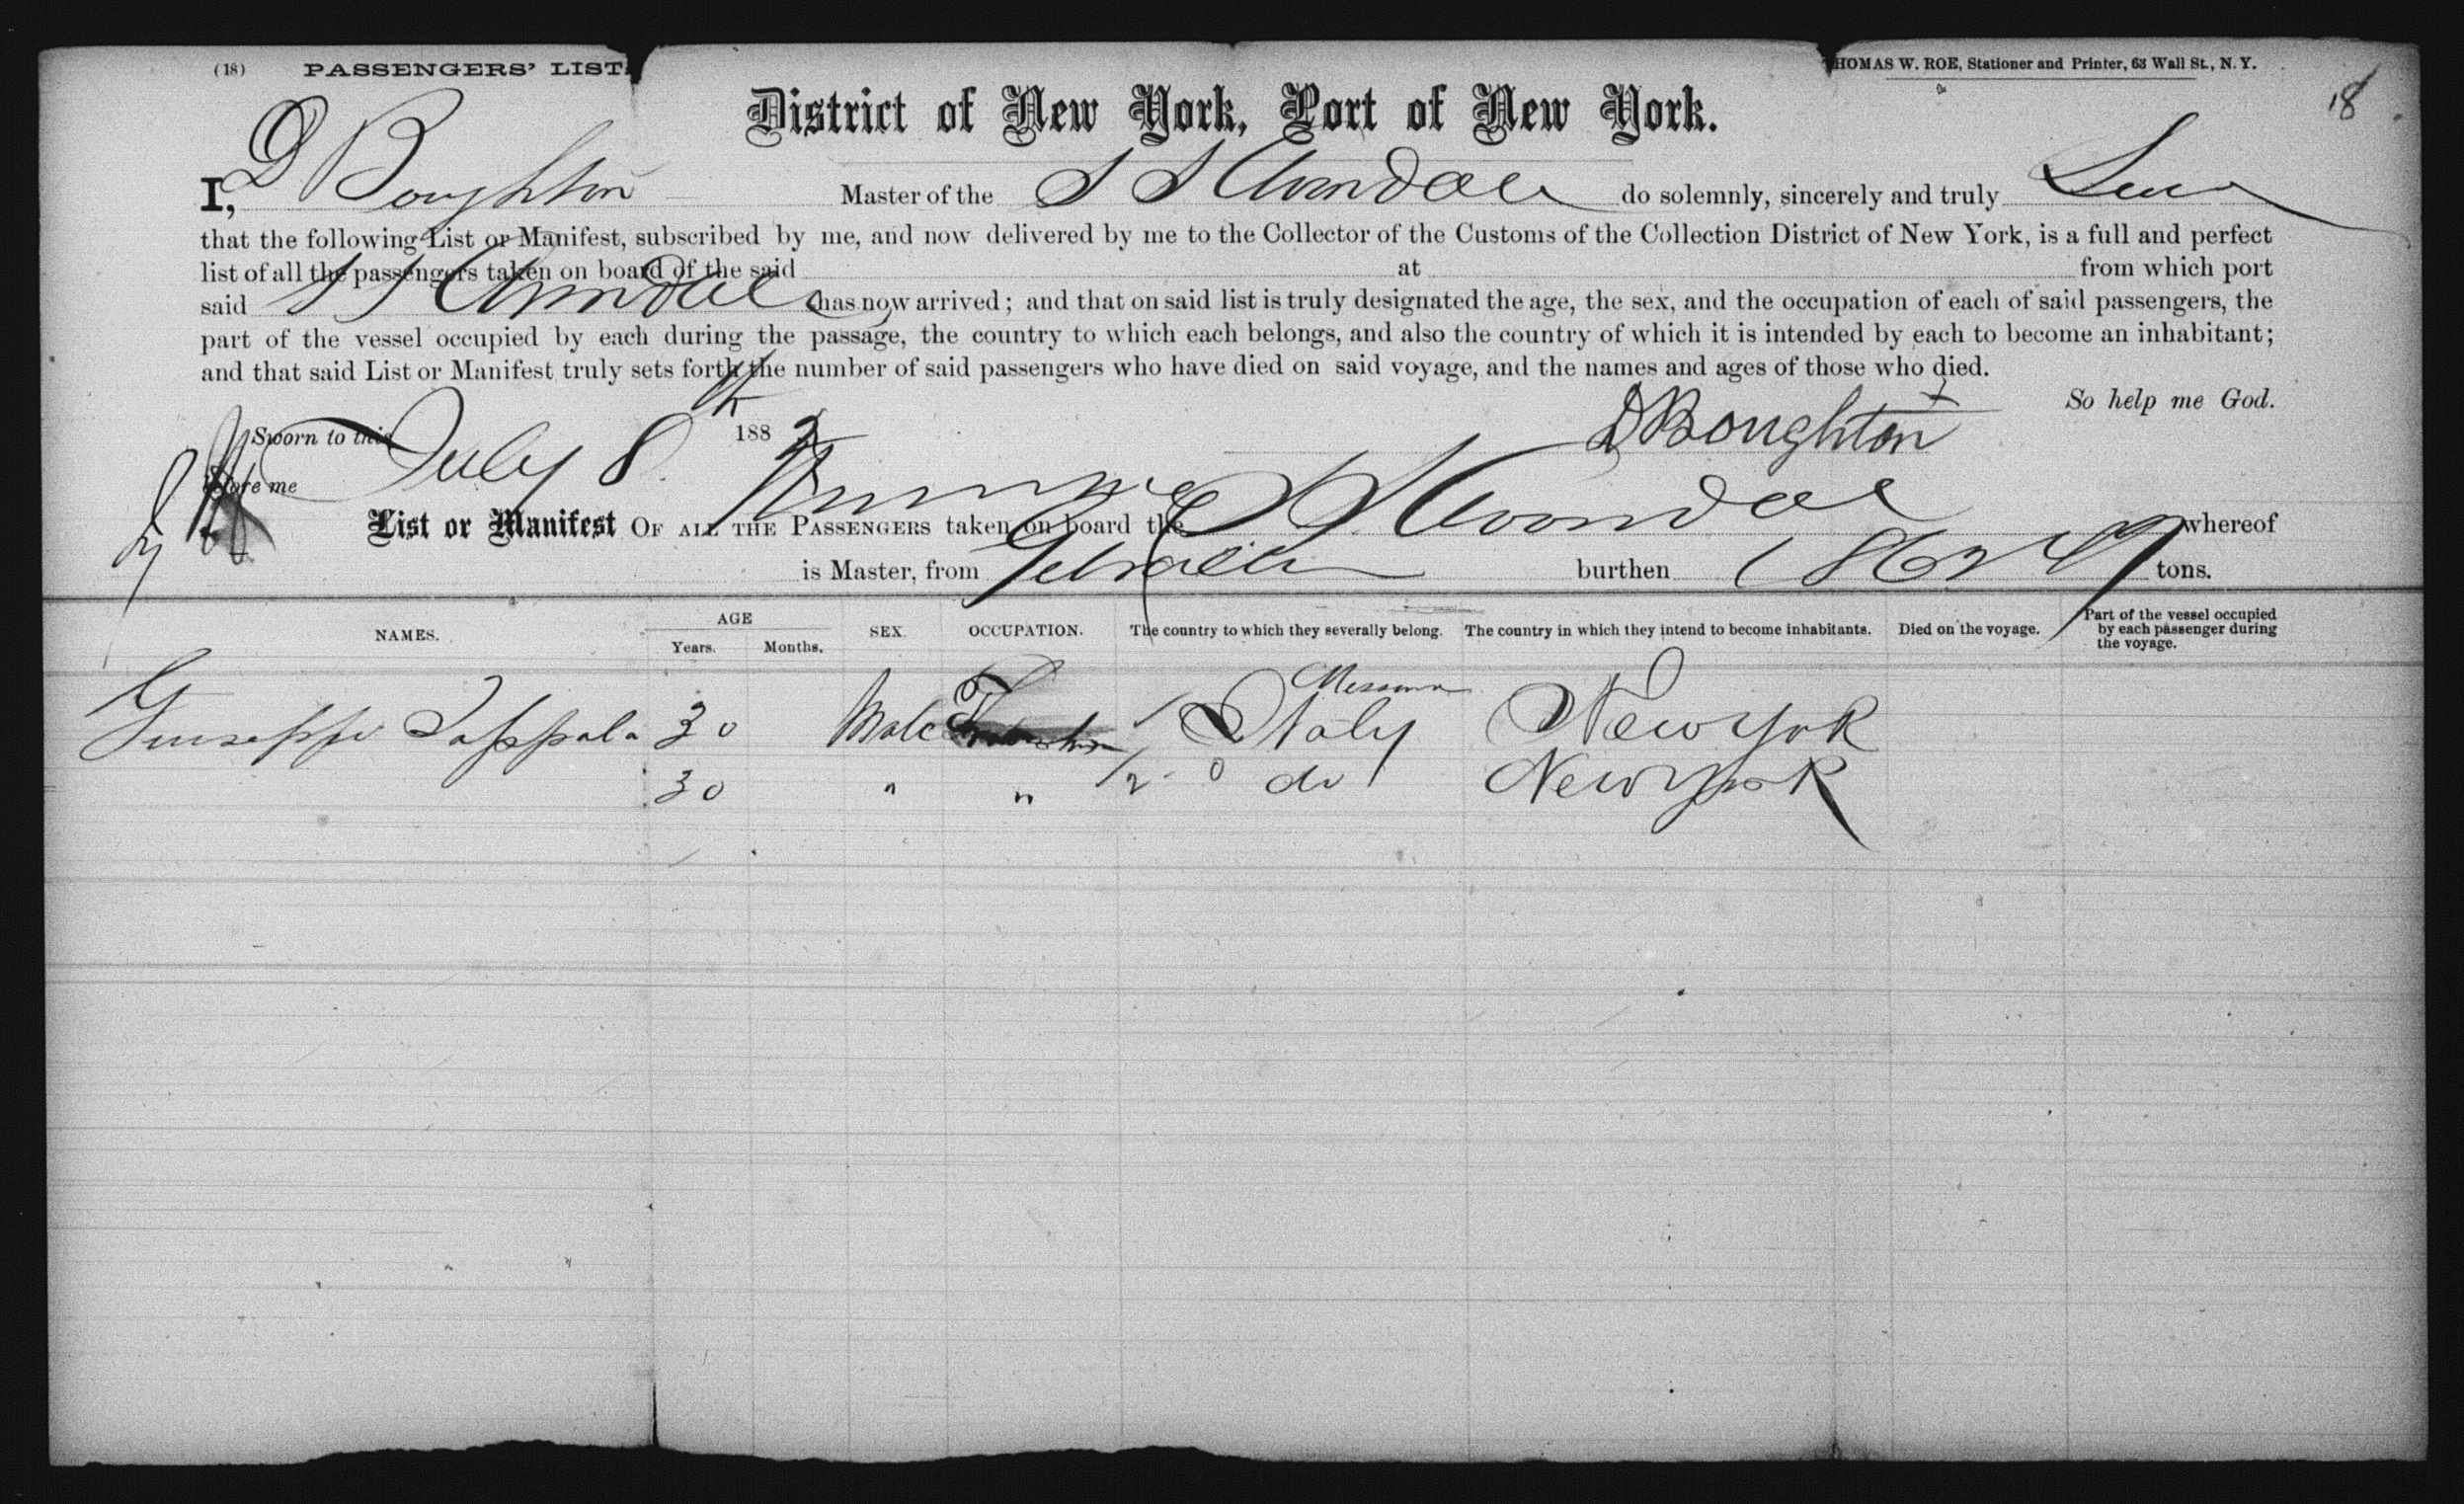 (18) PASSENGERS' LIST.
THOMAS W. ROE, Stationer and Printer, 63 Wall St., N. Y.
18
District of New York, Port of New York.
I, D Boughton Master of the S S Avondale do solemnly, sincerely and truly
that the following List or Manifest, subscribed by me, and now delivered by me to the Collector of the Customs of the Collection District of New York, is a full and perfect
list of all the passengers taken on board of the said at from which port
said S S Avondale has now arrived; and that on said list is truly designated the age, the sex, and the occupation of each of said passengers, the
part of the vessel occupied by each during the passage, the country to which each belongs, and also the country of which it is intended by each to become an inhabitant;
and that said List or Manifest truly sets forth the number of said passengers who have died on said voyage, and the names and ages of those who died.
So help me God.
Sworn to this July 8th 1882 D Boughton
before me
List or Manifest OF ALL THE PASSENGERS taken on board the S S Avondale whereof
is Master, from burthen tons.
NAMES. AGE Years. Months. SEX. OCCUPATION. The country to which they severally belong. The country in which they intend to become inhabitants. Died on the voyage. Part of the vessel occupied by each passenger during the voyage.
Messina
Giuseppe Zappala 30 Male Italy New York
30 " " 2 do New York